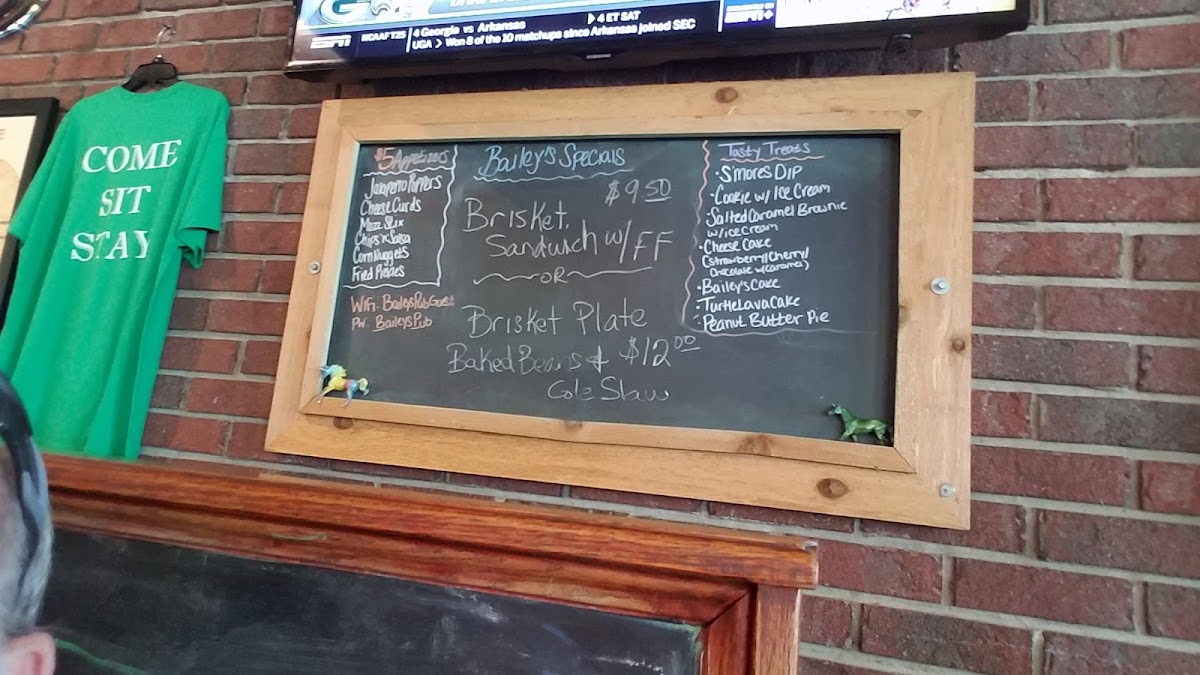 G
ESPN
NCAAFT25
4 Georgia vs Arkansas
4 ET SAT
UGA > Won 8 of the 10 matchups since Arkansas joined SEC
SAMSUNG
COME
SIT
STAY
$5 Appetizers
Jalapeno Poppers
Cheese Curds
Mozz Stix
Chips 'n' Salsa
Corn Nuggets
Fried Pickles
WiFi: BaileysPubGuest
PW: BaileysPub
Bailey's Specials
$9.50
Brisket
Sandwich w/ FF
OR
Brisket Plate
Baked Beans & $12.00
Cole Slaw
Tasty Treats
• S'mores Dip
• Cookie w/ Ice Cream
• Salted Caramel Brownie
w/ ice cream
• Cheese Cake
(Strawberry/Cherry/
Chocolate w/ Caramel)
• Bailey's Cake
• Turtle Lava Cake
• Peanut Butter Pie